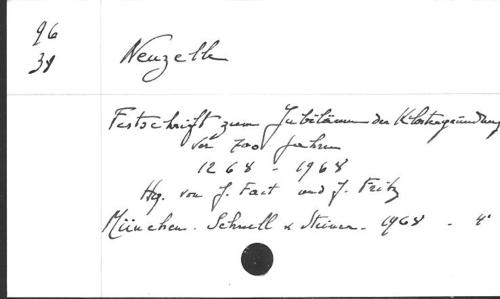 96
38
Neuzelle
Festschrift zum Jubiläum der Klostergründung
vor 700 Jahren
1268 - 1968
Hrg. von J. Fait und J. Fritz
München. Schnell & Steiner. 1968 - 4°